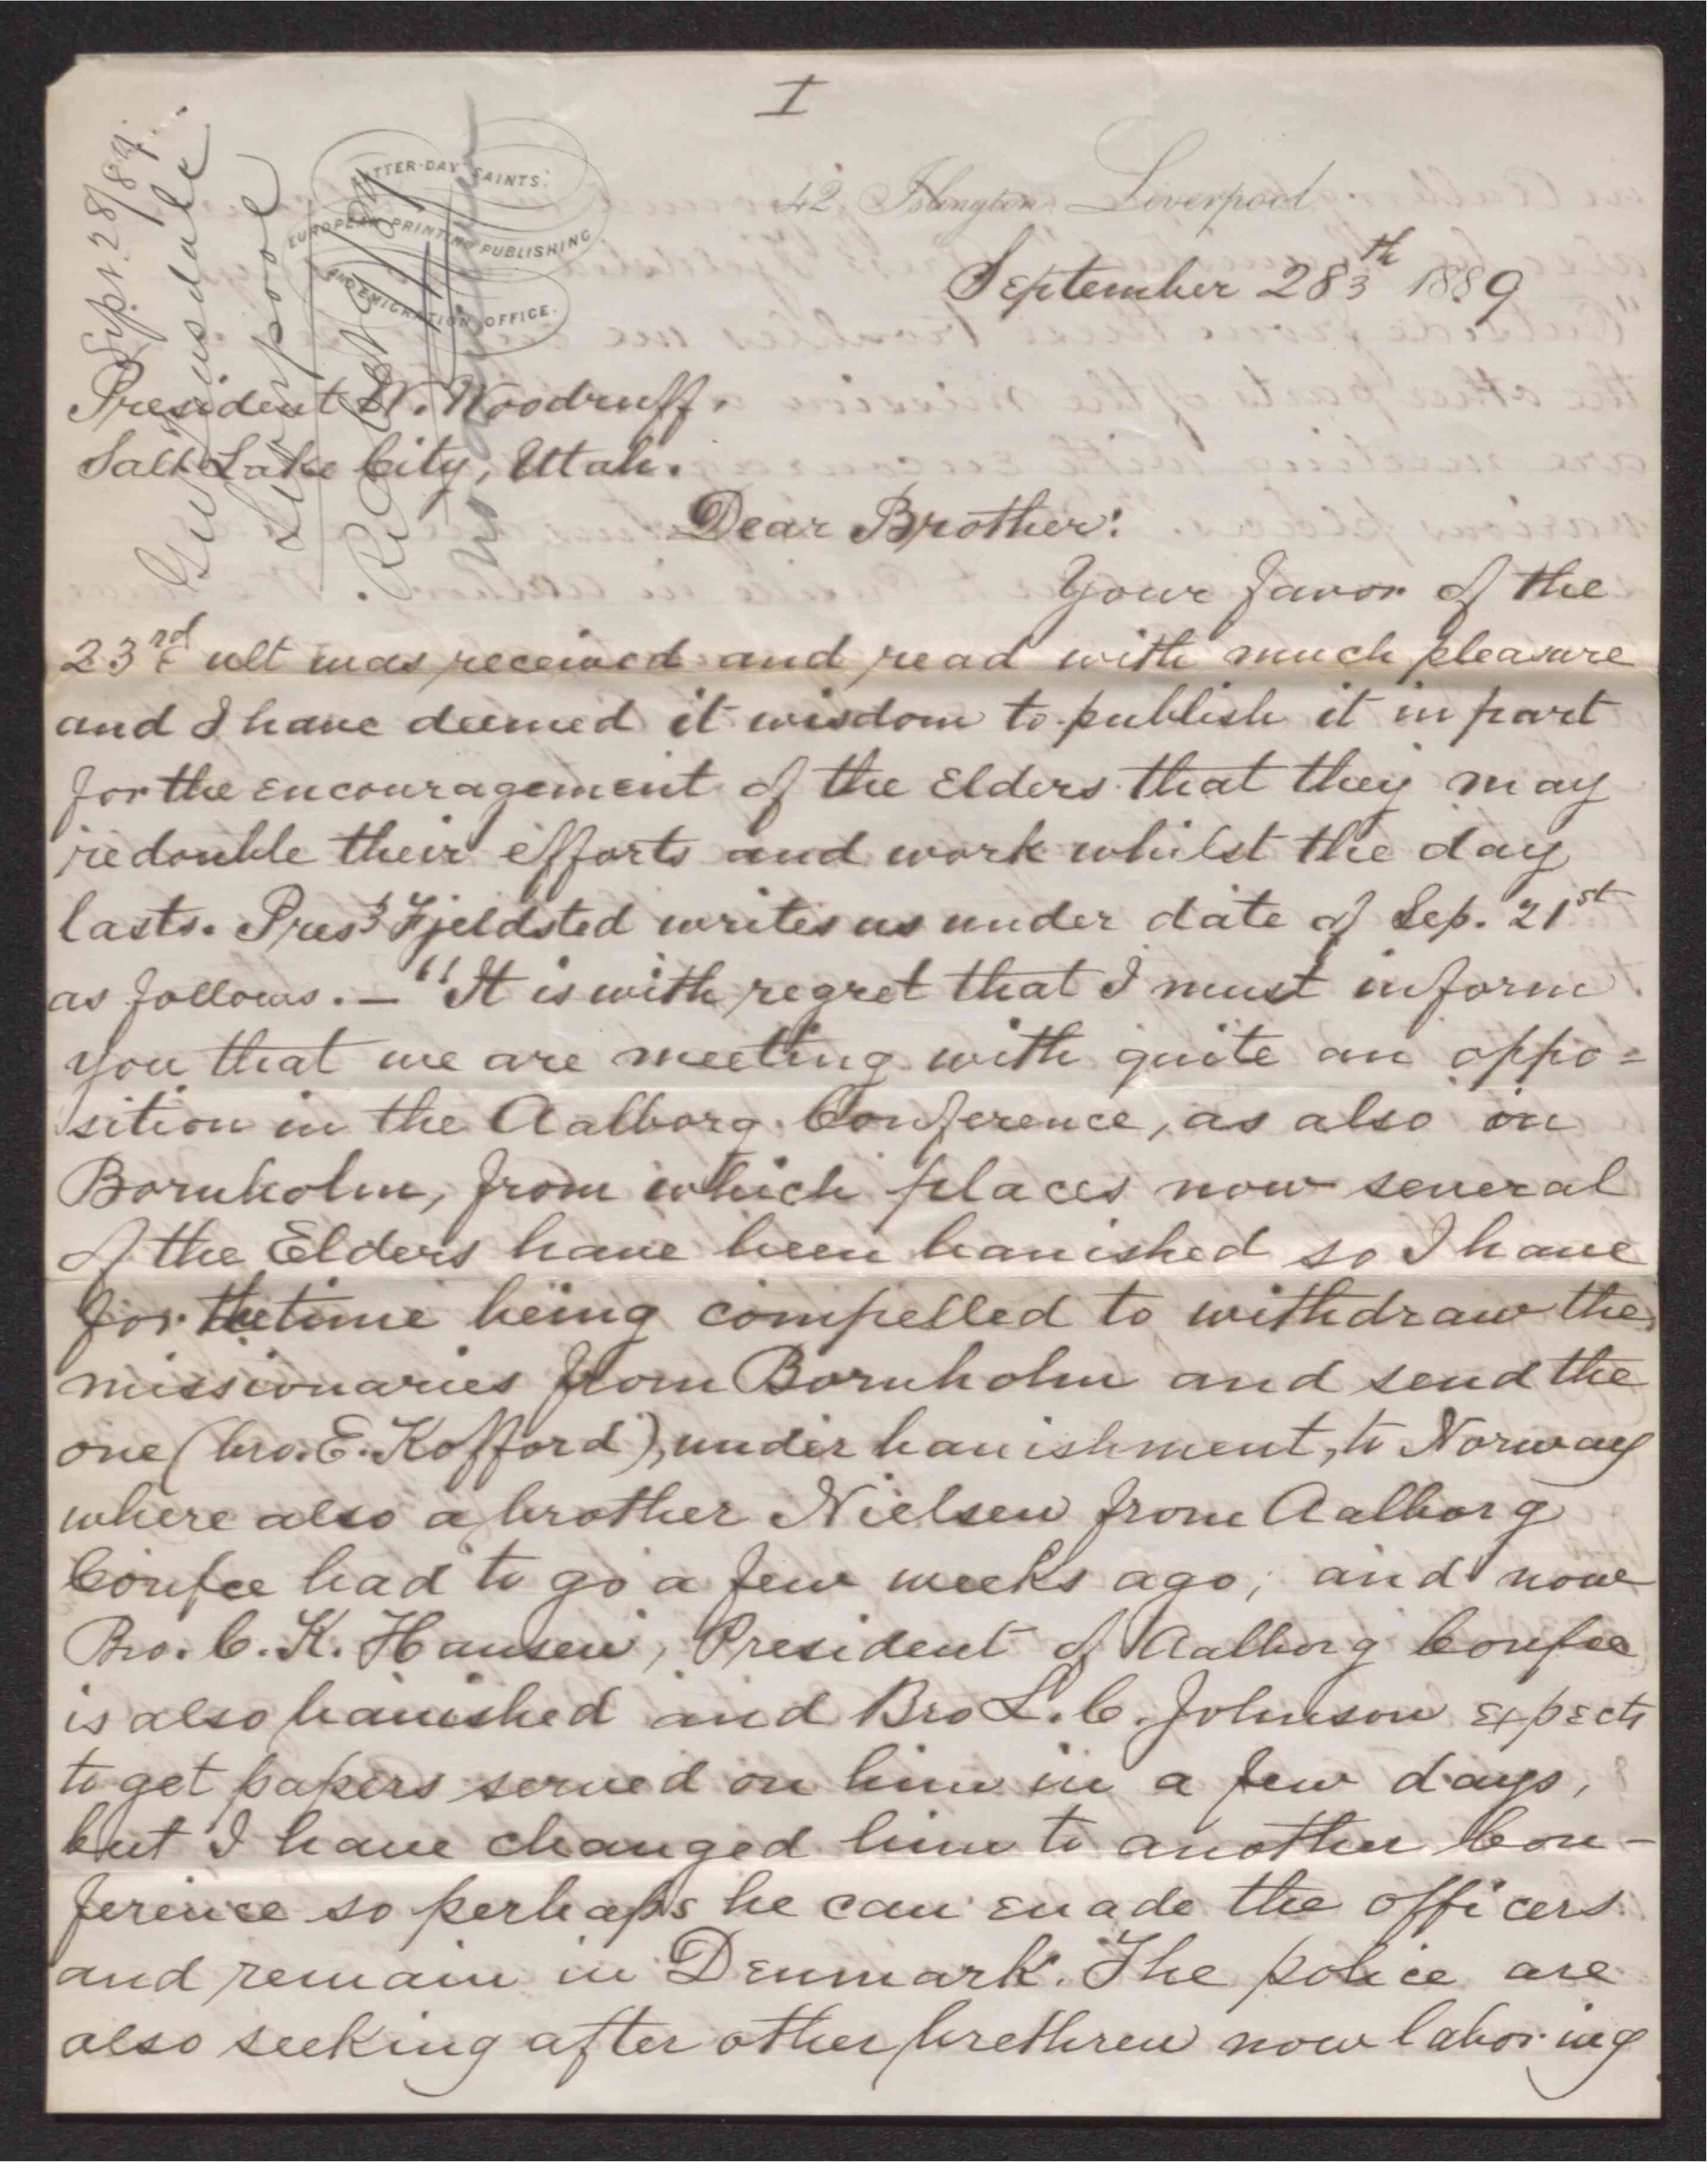 I
LATTER-DAY SAINTS'
EUROPEAN PRINTING PUBLISHING
AND EMIGRATION OFFICE.
42, Islington, Liverpool
September 28th 1889
Sept. 28/89.
Liverpool
President W. Woodruff.
Salt Lake City, Utah.
Dear Brother:
Your favor of the
23rd ult was received and read with much pleasure
and I have deemed it wisdom to publish it in part
for the encouragement of the Elders that they may
redouble their efforts and work whilst the day
lasts. Prest Fjeldsted writes us under date of Sep. 21st
as follows. — "It is with regret that I must inform
you that we are meeting with quite an oppo=
sition in the Aalborg Conference, as also on
Bornholm, from which places now several
of the Elders have been banished so I have
for the time being compelled to withdraw the
missionaries from Bornholm and send the
one (bro. E. Kofford), under banishment, to Norway
where also a brother Nielsen from Aalborg
Confce had to go a few weeks ago; and now
Bro. C. K. Hansen, President of Aalborg Confce
is also banished and Bro L. C. Johnson expects
to get papers served on him in a few days,
but I have changed him to another Con-
ference so perhaps he can evade the officers
and remain in Denmark. The police are
also seeking after other brethren now laboring